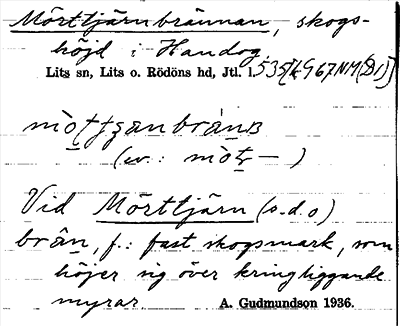 Mörttjärnbrännan, skogs-
höjd i Handog,
Lits sn, Lits o. Rödöns hd, Jtl. l.
(ev.: mòt̯r — )
Vid Mörttjärn (s.d.o)
brân, f.: fast skogsmark, som
höjer sig över kringliggande
myrar.
A. Gudmundson 1936.